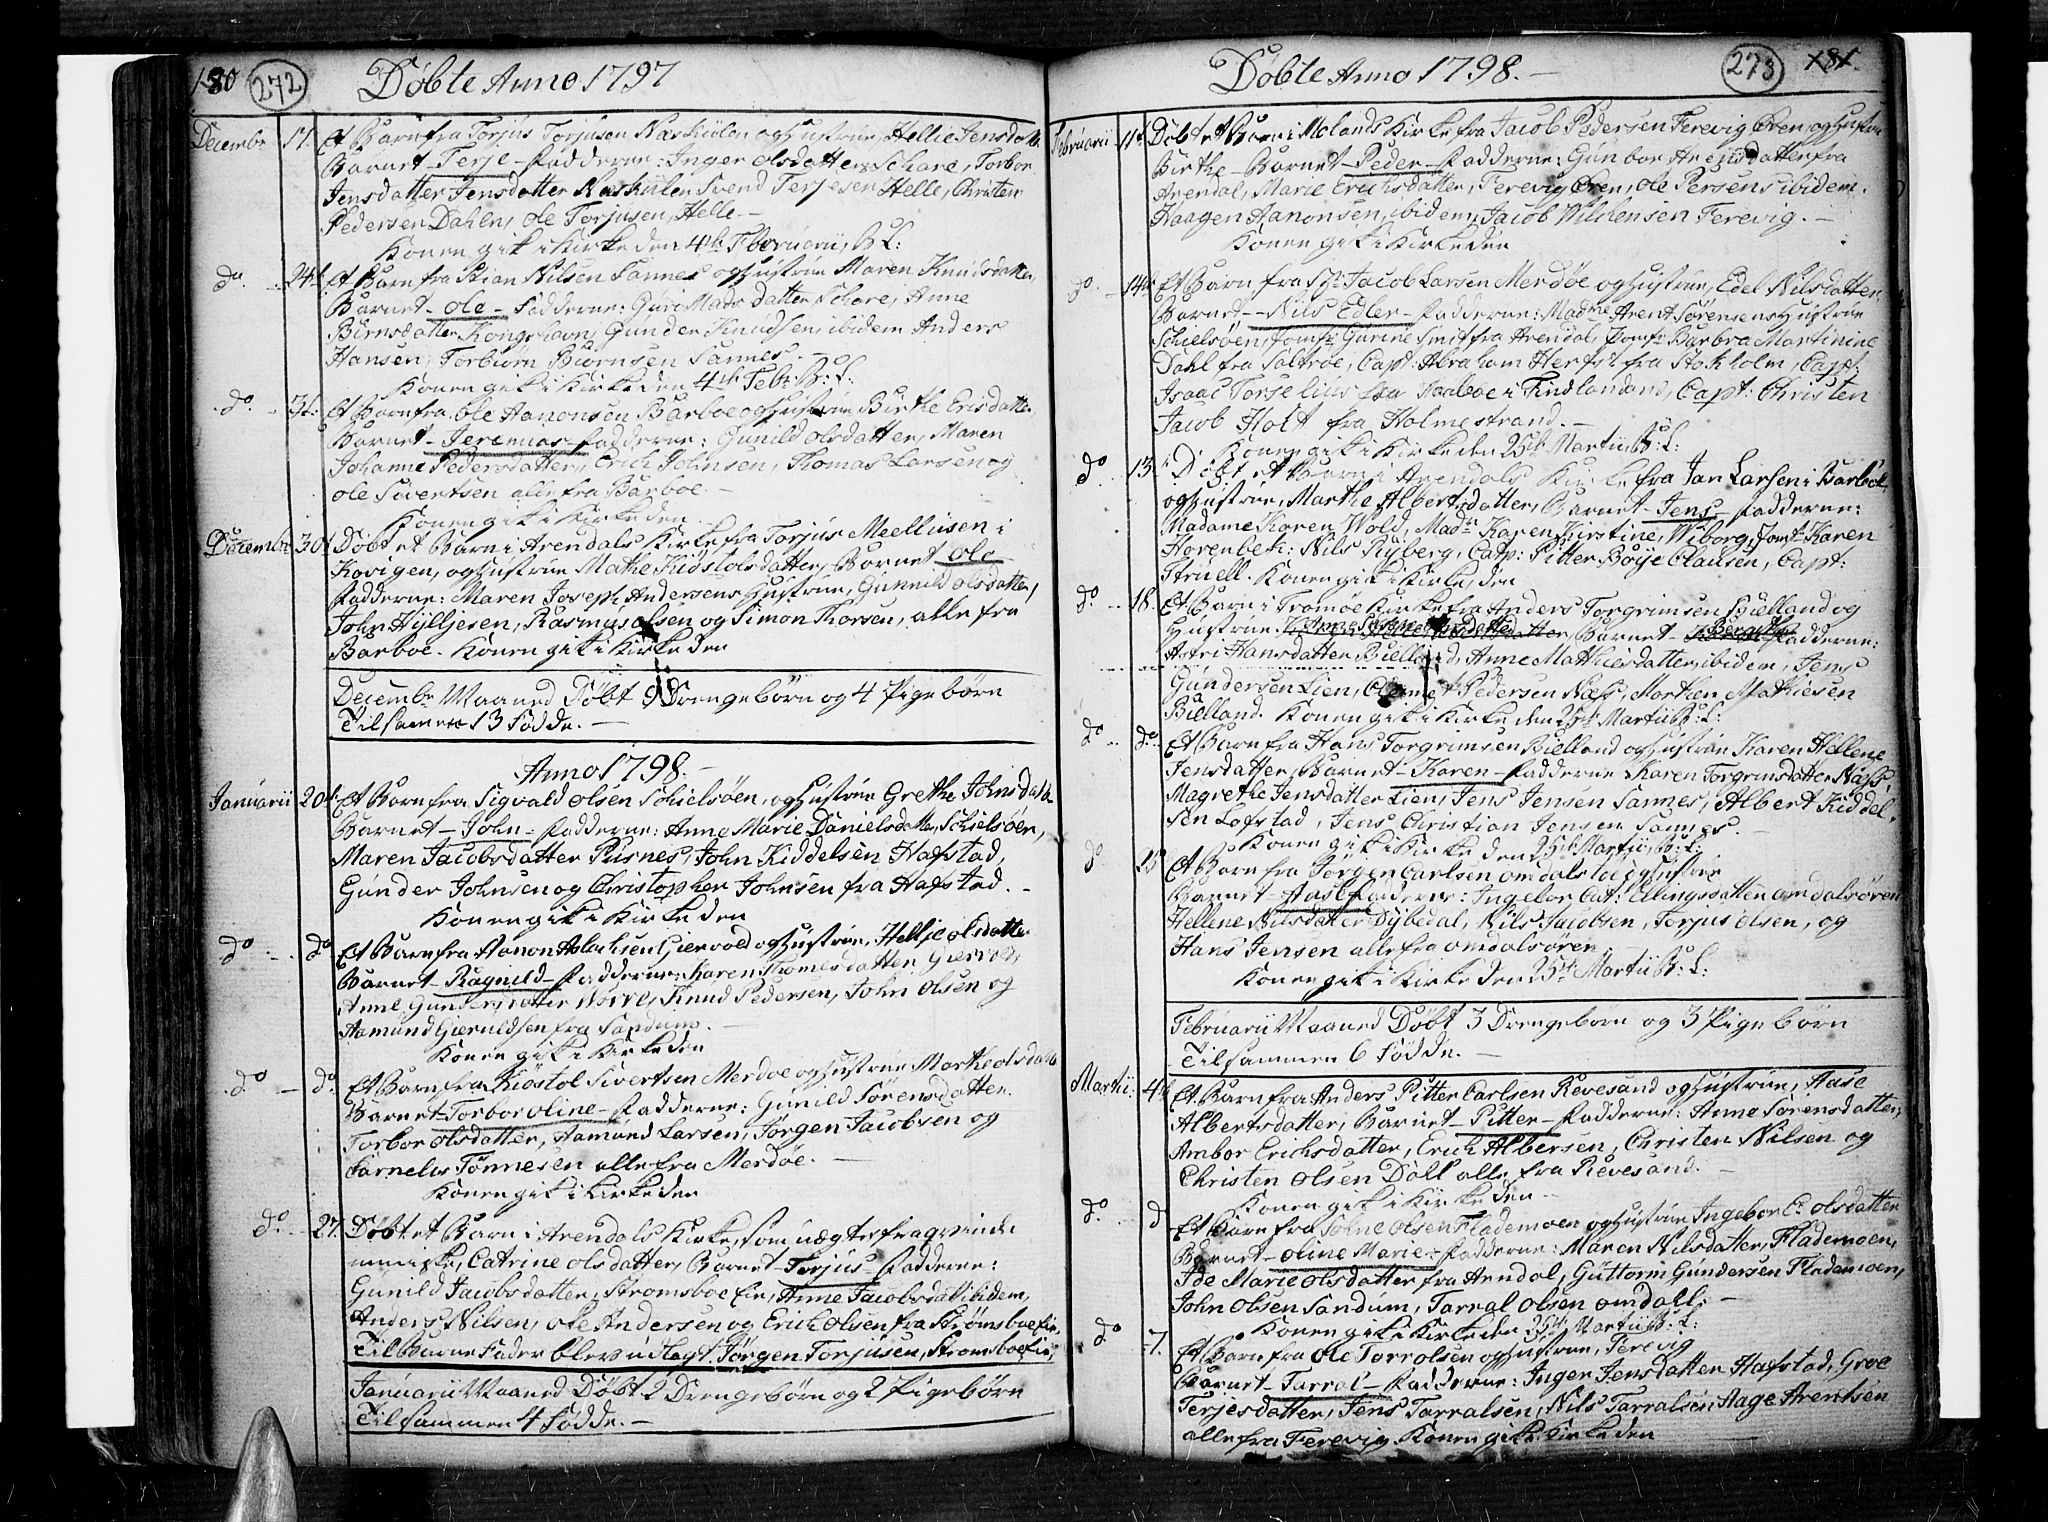 180 272 Døbte Anno 1797
Decembr 17. Et Barn fra Torjus Torjusen Naskilen og Hustrue, Hellie Jensdatter
Barnet - Terje - Fadderne: Inger Olsdatter Schare, Torbor
Jensdatter Jensdatter Naskilen Svend Terjesen Helle, Christen
Pedersen Dahlen, Ole Torjusen, Helle. -
Konen gik i Kirke den 4de Februarii, B: L:
do 24de Et Barn fra Stian Nilsen Sannes og Hustrue Maren Knudsdatter,
Barnet - Ole - Fadderne: Guri Madsdatter Schare, Anne
Birnsdatter Kongshavn, Gunder Knudsen, ibidem Anders
Hansen, Torbiørn Biørnsen Sannes. -
Konen gik i Kirke den 4de Febr: B: L:
do. 31. Et Barn fra Ole Aanonsen Barboe og Hustrue Birthe Erisdatter
Barnet - Jeremias - Fadderne: Gunild Olsdatter, Maren
Johanne Pedersdatter, Erich Johnsen, Thomas Larsen og
Ole Sivertsen alle fra Barboe. -
Konen gik i Kirke den
Decembr 30. Døbt et Barn i Arendals Kirke fra Torjus Meellusen i
Kovigen, og Hustrue Mathe Kidstolsdatter, Barnet Ole
Fadderne: Maren Joseph Andersens Hustrue, Gunnild Olsdatter,
John Hylljesen, Rasmus Olsen og Simon Thorsen, alle fra
Barboe. Konen gik i Kirke den
Decembr Maaned Døbt 9 Drengebørn og 4 Pigebørn
Tilsammen 13 Fødde. -
Anno 1798. -
Januarii 20de Et Barn fra Sigvald Olsen Schielsøen, og Hustrue Grethe Johnsdatter
Barnet - John - Fadderne: Anne Marie Danielsdatter, Schielsøen,
Maren Jacobsdatter Pusnes, John Kiddelsen Hafstad,
Gunder Johnsen og Christopher Johnsen fra Hafstad. -
Konen gik i Kirke den
do do Et Barn fra Aanon Aslachsen Giervold og Hustrue, Hellje Olsdatter
Barnet - Ragnild - Fadderne: Karen Thomesdatter Giervold,
Anne Gundersdatter Norre, Knud Pedersen, John Olsen og
Aamund Gieruldsen fra Sandum. -
Konen gik i Kirke den
do do Et Barn fra Kiøstol Sivertsen Merdøe og Hustrue Marthe Olsdatter
Barnet - Torbor Oline - Fadderne: Gunild Sørensdatter
Torbor Olsdatter, Aamund Larsen, Jørgen Jacobsen og
Cornelus Tønnesen alle fra Merdøe. -
Konen gik i Kirke den
do. 27. Døbt et Barn i Arendals Kirke, som uægte fra qvinde
menniske, Catrine Olsdatter, Barnet - Torjus - Fadderne:
Gunild Jacobsdatter, Strømsboe Eie, Anne Jacobsdatt ibidem,
Anders Nilsen, Ole Andersen og Erich Olsen fra Strømsboe Eie,
Til Barne Fader blev udlagt Jørgen Torjusen, Strømsboe Eie,
Januarii Maaned Døbt 2 Drengebørn og 2 Pigebørn
Tilsammen 4 Fødde. -
Døbte Anno 1798. - 273 181.
Februarii 11te Døbt et Barn i Molands Kirke fra Jacob Pedersen Ferevig Øren, og Hustrue
Birthe - Barnet - Peder - Fadderne: Gunbor Arensdatter fra
Arendal, Marie Erichsdatter, Ferevig Øren, Ole Persens ibidem.
Haagen Aanonsen, ibidem, Jacob Wilchensen Ferevig. -
Konen gik i Kirke den
do. 14de Et Barn fra Sr: Jacob Larsen Merdøe og Hustrue, Edel Nilsdatter,
Barnet - Nils Edler - Fadderne: Madme Arent Sørensens Hustrue
Schielsøen, Jomf: Gurine Smit fra Arendal, Jomf: Barbra Martinine
Dahl fra Saltrøe, Capt: Abraham Herfst fra Stokholm, Capt:
Isaac Torselius fra Naaboe i Findlandand, Capt: Christen
Jacob Holt fra Holmestrand. -
Konen gik i Kirke den 25de Martii B: L:
do 13. Døbt et Barn i Arendals Kirke fra Jan Larsen i Barboe,
og Hustrue, Marthe Albertsdatter, Barnet - Jens - Fadderne:
Madame Karen Wold, Madme Karen Kirstine Wiborg, Jomf: Karen
Horenbek: Nils Ryberg, Catp: Pitter Bøye Clausen, Capt:
Struell. Konen gik i Kirke, den
do. 18. Et Barn i Tromøe Kirke fra Anders Torgrimsen Bielland og
Hustrue, Barnet - Bergithe Fadderne:
Astri Hansdatter Bielland, Anne Mathiesdatter, ibidem, Jens
Gundersen Lien, Clemet Pedersen Næss, Morthen Mathiesen
Bielland. Konen gik i Kirke den 25de Martii B: L:
do do. Et Barn fra Hans Torgrimsen Bielland og Hustrue Karen Hellene
Jensdatter, Barnet - Karen - Fadderne: Karen Torgrimsdatter Næss,
Magrethe Jensdatter Lien, Jens Jensen Sannes, Albert Kiddel-
sen Lofstad, Jens Christian Jensen Sannes. -
Konen gik i Kirke den 25de Martii, B: L:
do 25 Et Barn fra Jørgen Carlsen Omdalstøe og Hustrue
Barnet - Aase Fadderne: Ingebor Cat: Ellingsdatter Omdalsøren
Hellene Nilsdatter Dybedal, Nils Jacobsen, Torjus Olsen, og
Hans Jensen alle fra Omdalsøren. -
Konen gik i Kirke den 25de Martii B: L:
Februarii Maaned Døbt 3 Drengebørn og 3 Pigebørn
Tilsammen 6 Fødde. -
Martii: 4de Et Barn fra Anders Pitter Carlsen Revesand og Hustrue, Aase
Albertsdatter, Barnet - Pitter - Fadderne: Anne Sørensdatter,
Ambor Erichsdatter, Erich Albersen, Christen Nilsen og
Christen Olsen Doll alle fra Revesand. -
Konen gik i Kirke den -
do. d Et Barn fra Johne Olsen Flademoen og Hustrue Ingebor C: Olsdatter
Barnet - Oline Marie - Fadderne: Maren Nilsdatter, Flademoen,
Ide Marie Olsdatter fra Arndal, Guttorm Gundersen Flademoen,
John Olsen Sandum, Tarral Olsen Omdall. -
Konen gik i Kirke den 25de Martii B: L:
do 7. Et Barn fra Ole Tarrolsen og Hustrue, Ferevig
Barnet - Tarral - Fadderne: Inger Jensdatter Hafstad, Groe
Terjesdatter, Jens Tarralsen, Nils Tarralsen Aage Arentsen
alle fra Ferevig Konen gik i Kirke den